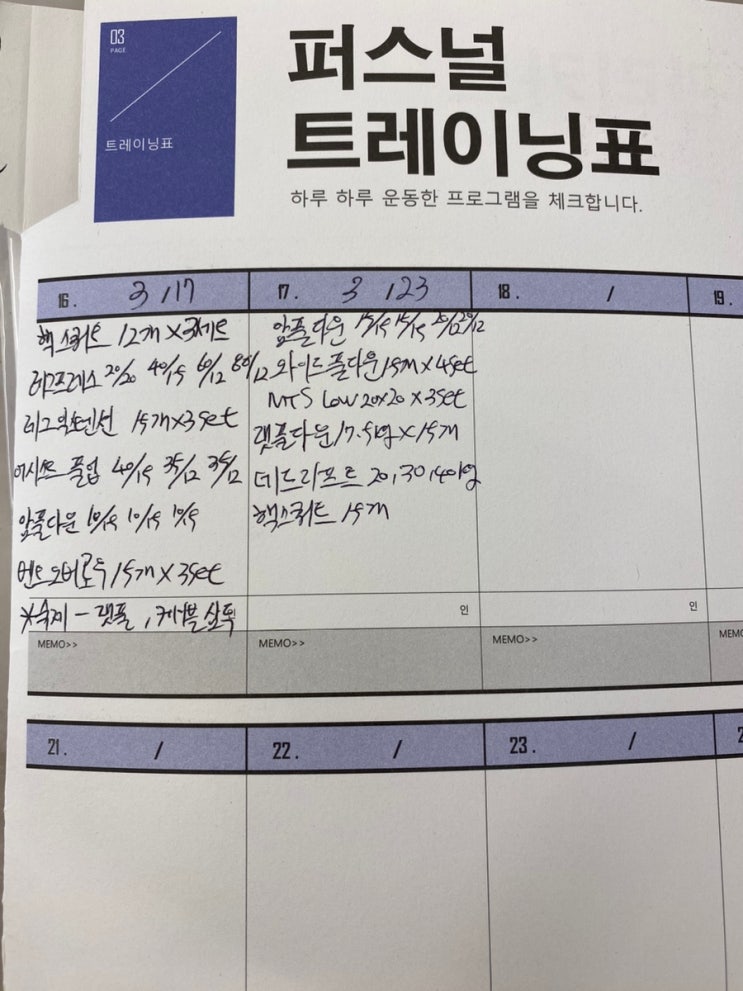 03
PAGE
트레이닝표
퍼스널
트레이닝표
하루 하루 운동한 프로그램을 체크합니다.
16. 3/17
핵스쿼트 12개 X 3세트
레그프레스 20/20 40/15 60/12 80/12
레그익스텐션 15개X3set
어시스트 풀업 40/15 35/12 35/12
암풀다운 10/15 10/15 10/15
벤트오버로우 15개 X 3set
*숙제 - 랫풀, 케이블암풀
MEMO>>
17. 3/23
암풀다운 15/15 15/15 20/12 20/12
와이드풀다운 15개 X 4set
MTS Low 20x20 X 3set
랫풀다운 17.5kg X 15개
데드리프트 20, 30, 40kg
핵스쿼트 15개
인
MEMO>>
18. /
인
MEMO>>
19.
MEMO
21. /
22. /
23. /
2